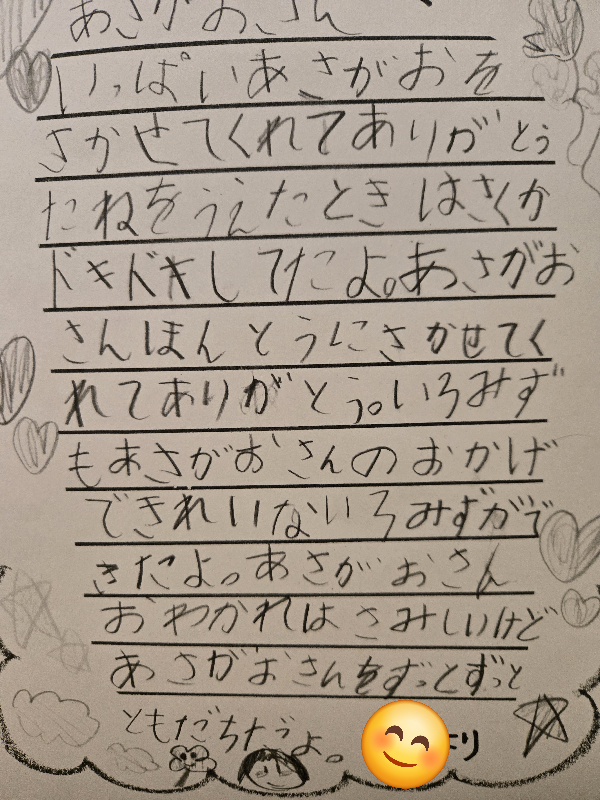 あさがおさん
いっぱいあさがおを
さかせてくれてありがとう
たねをうえたときはさくか
ドキドキしてたよ。あさがお
さんほんとうにさかせてく
れてありがとう。いろみず
もあさがおさんのおかげ
できれいないろみずがで
きたよ。あさがおさん
おわかれはさみしいけど
あさがおさんをずっとずっと
ともだちだよ。
り